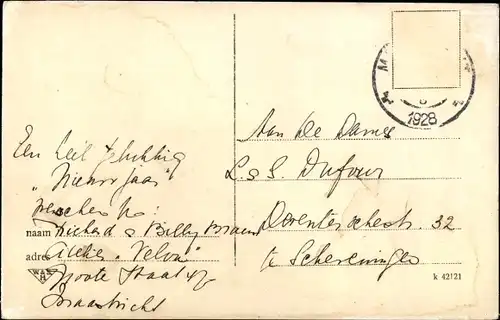 Een heil & gelukkig
"Nieuw Jaar"
wenschen U:
naam Richard & Billy Braun
adres Atelier "Velva"
Groote Straat
Maastricht
M
1928
Aan De Dames
L & S. Dufour
Deventerschestr. 32
te Scheveningen
k 42121